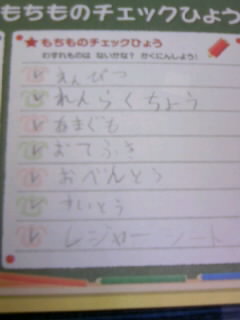 もちものチェックひょう
★もちものチェックひょう
わすれものは ないかな? かくにんしよう!
えんぴつ
れんらくちょう
あまぐも
おてふき
おべんとう
すいとう
レジャーシート